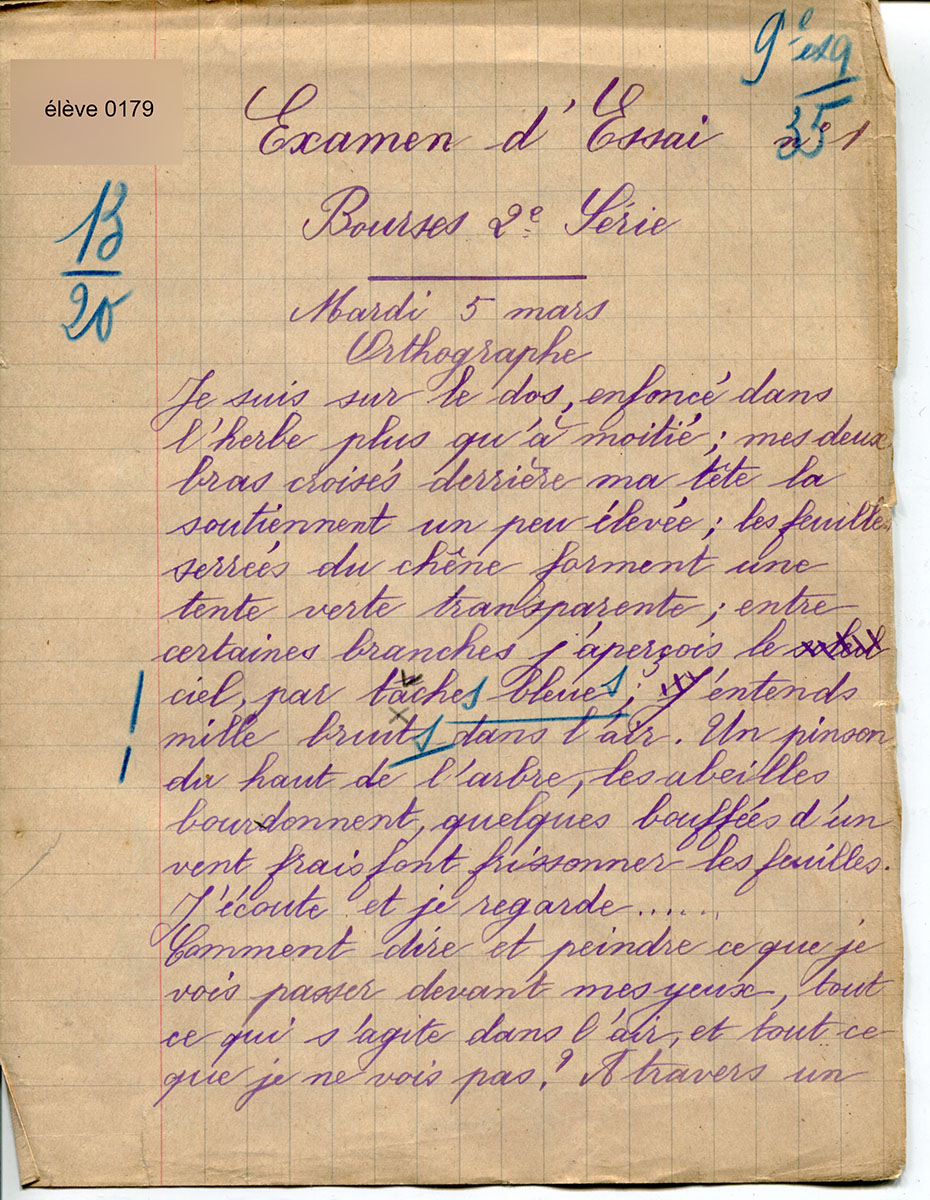 9e ex
9
35
élève 0179
Examen d'Essai n° 1
13
20
Bourses 2e Série
Mardi 5 mars
Orthographe
Je suis sur le dos, enfoncé dans
l'herbe plus qu'à moitié ; mes deux
bras croisés derrière ma tête la
soutiennent un peu élevée ; les feuilles
serrées du chêne forment une
tente verte transparente ; entre
certaines branches j'aperçois le
ciel, par taches bleues ; J'entends
mille bruits dans l'air. Un pinson
du haut de l'arbre, les abeilles
bourdonnent, quelques bouffées d'un
vent frais font frissonner les feuilles.
J'écoute et je regarde......
Comment dire et peindre ce que je
vois passer devant mes yeux, tout
ce qui s'agite dans l'air, et tout ce
que je ne vois pas ? A travers un